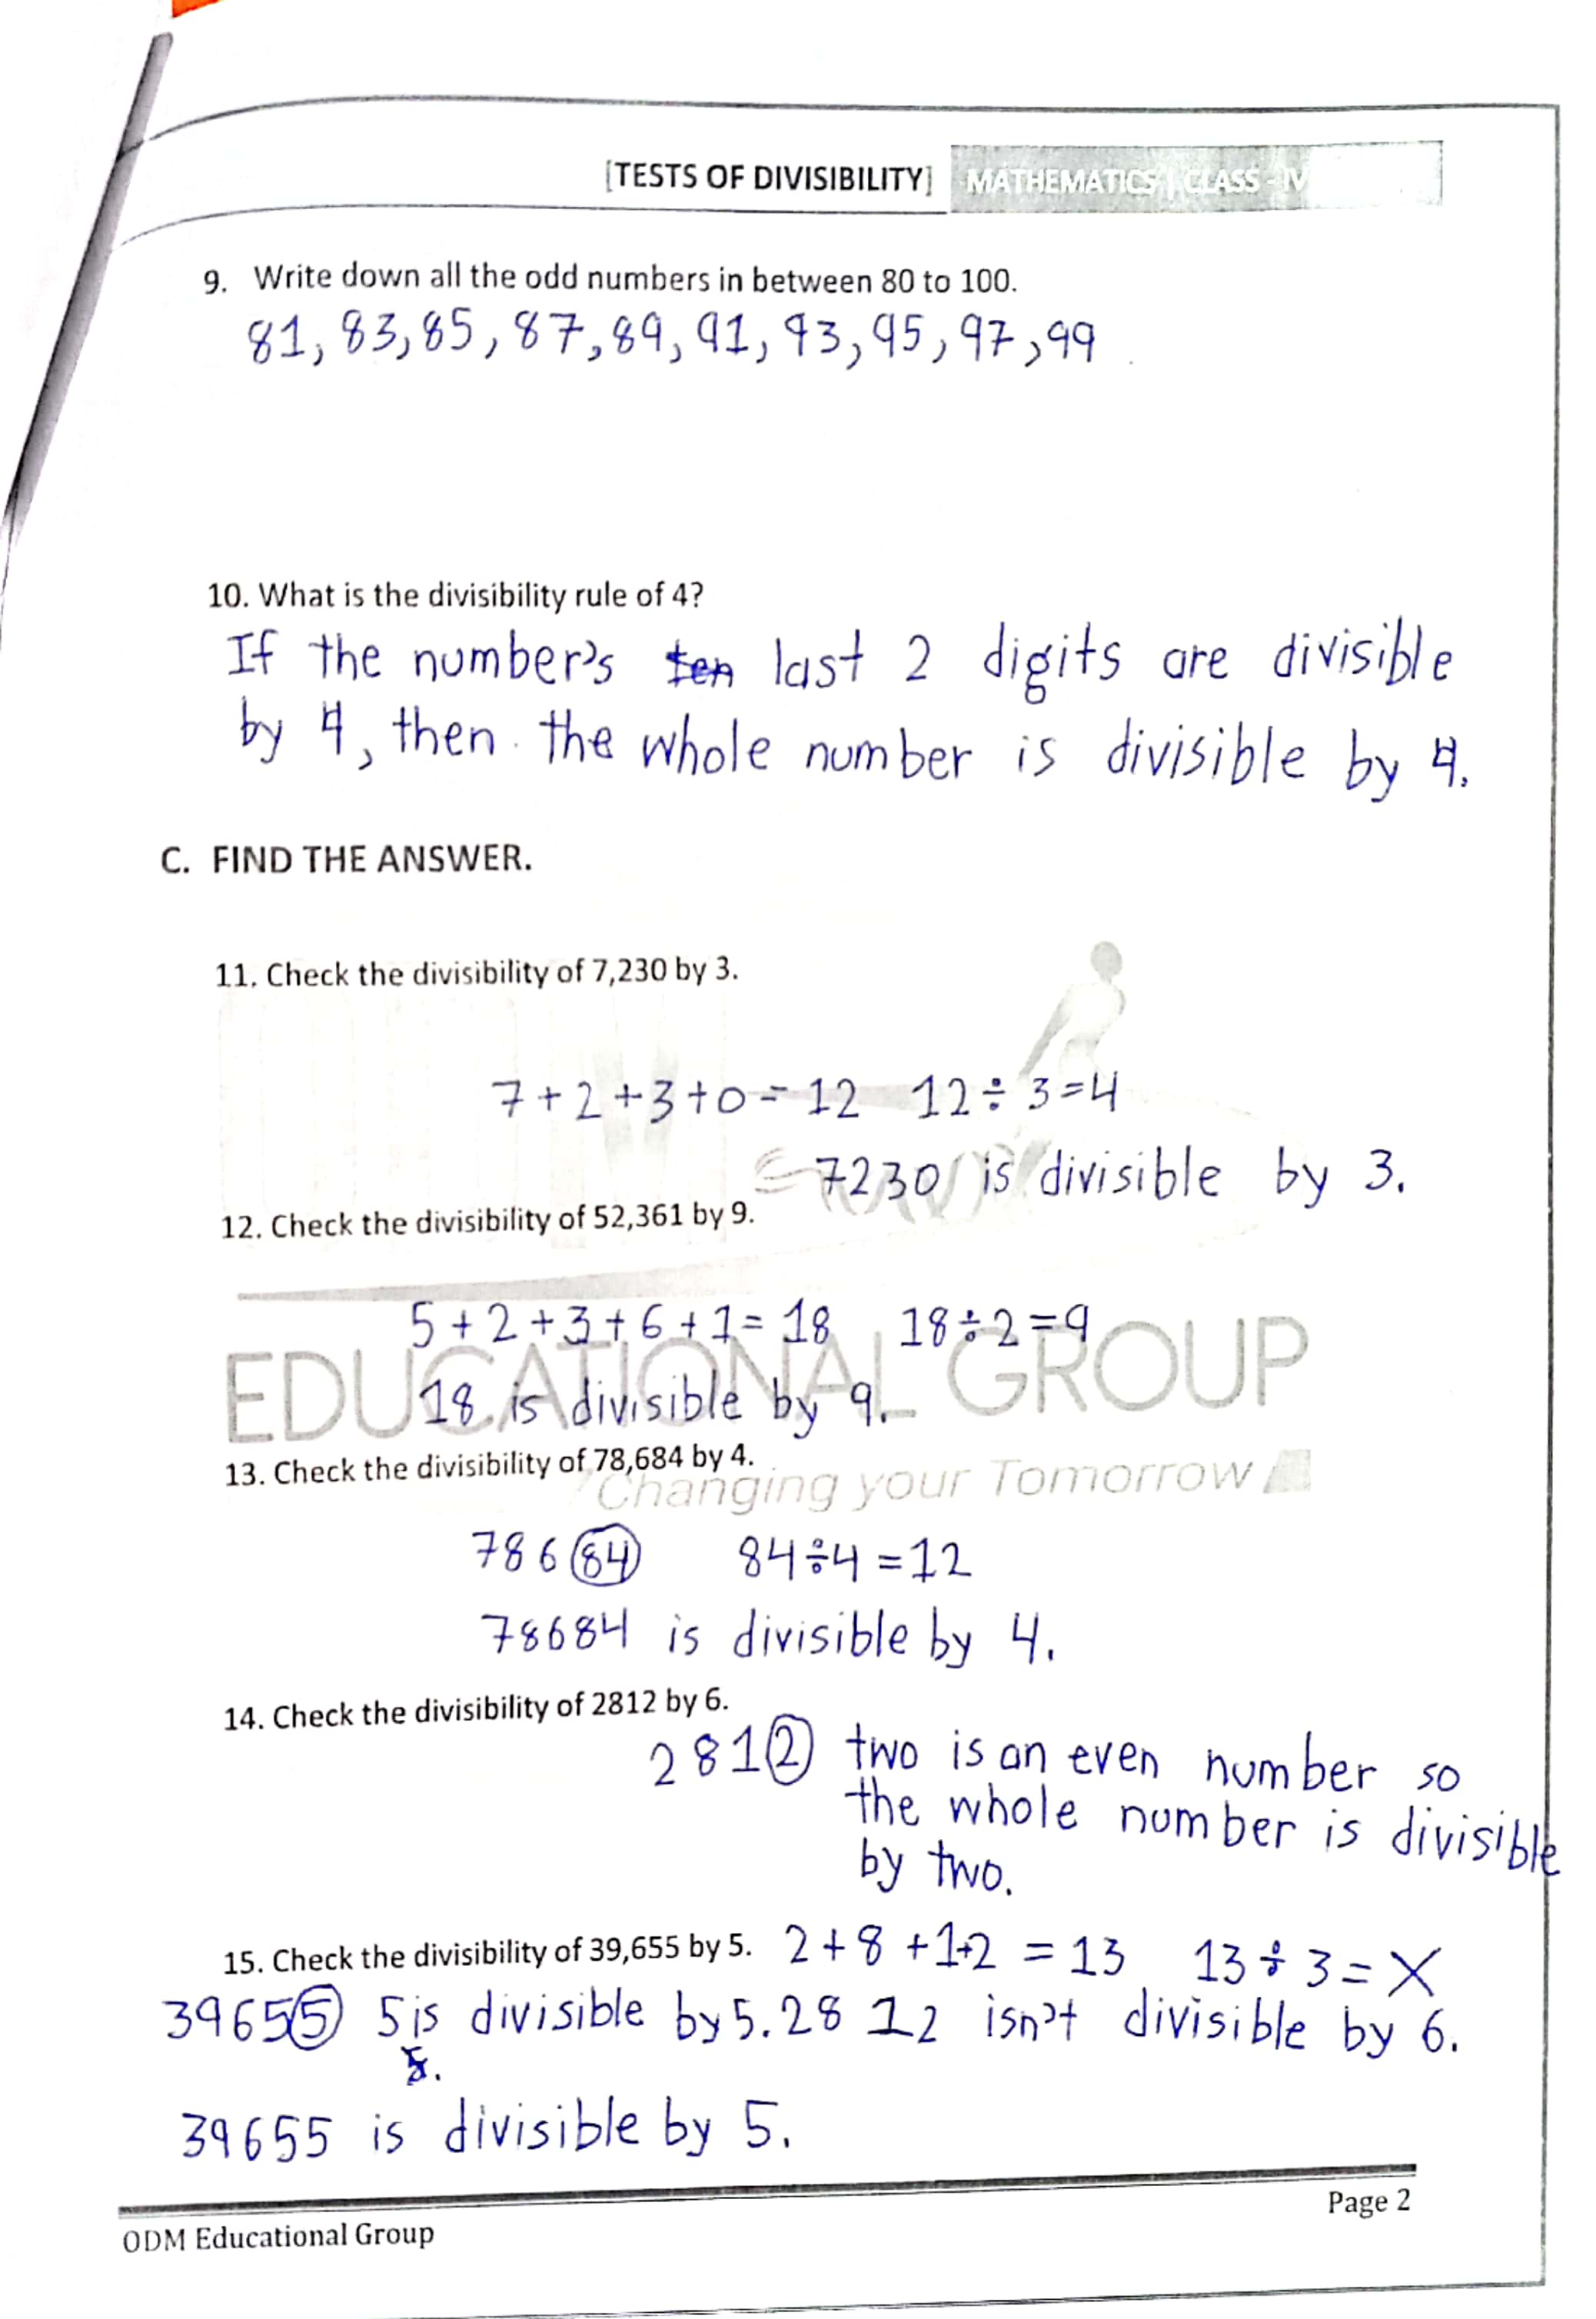 [TESTS OF DIVISIBILITY] MATHEMATICS | CLASS - IV
9. Write down all the odd numbers in between 80 to 100.
81, 83, 85, 87, 89, 91, 93, 95, 97, 99
10. What is the divisibility rule of 4?
If the number's ten last 2 digits are divisible
by 4, then the whole number is divisible by 4.
C. FIND THE ANSWER.
11. Check the divisibility of 7,230 by 3.
7+2+3+0=12 12÷3=4
7230 is divisible by 3.
12. Check the divisibility of 52,361 by 9.
5+2+3+6+1=18 18÷2=9
EDUCATIONAL GROUP
18 is divisible by 9.
13. Check the divisibility of 78,684 by 4.
Changing your Tomorrow
78684 84÷4=12
78684 is divisible by 4.
14. Check the divisibility of 2812 by 6.
2812 two is an even number so
the whole number is divisible
by two.
15. Check the divisibility of 39,655 by 5. 2+8+1+2=13 13÷3=X
39655 5 is divisible by 5. 2812 isn't divisible by 6.
5.
39655 is divisible by 5.
Page 2
ODM Educational Group